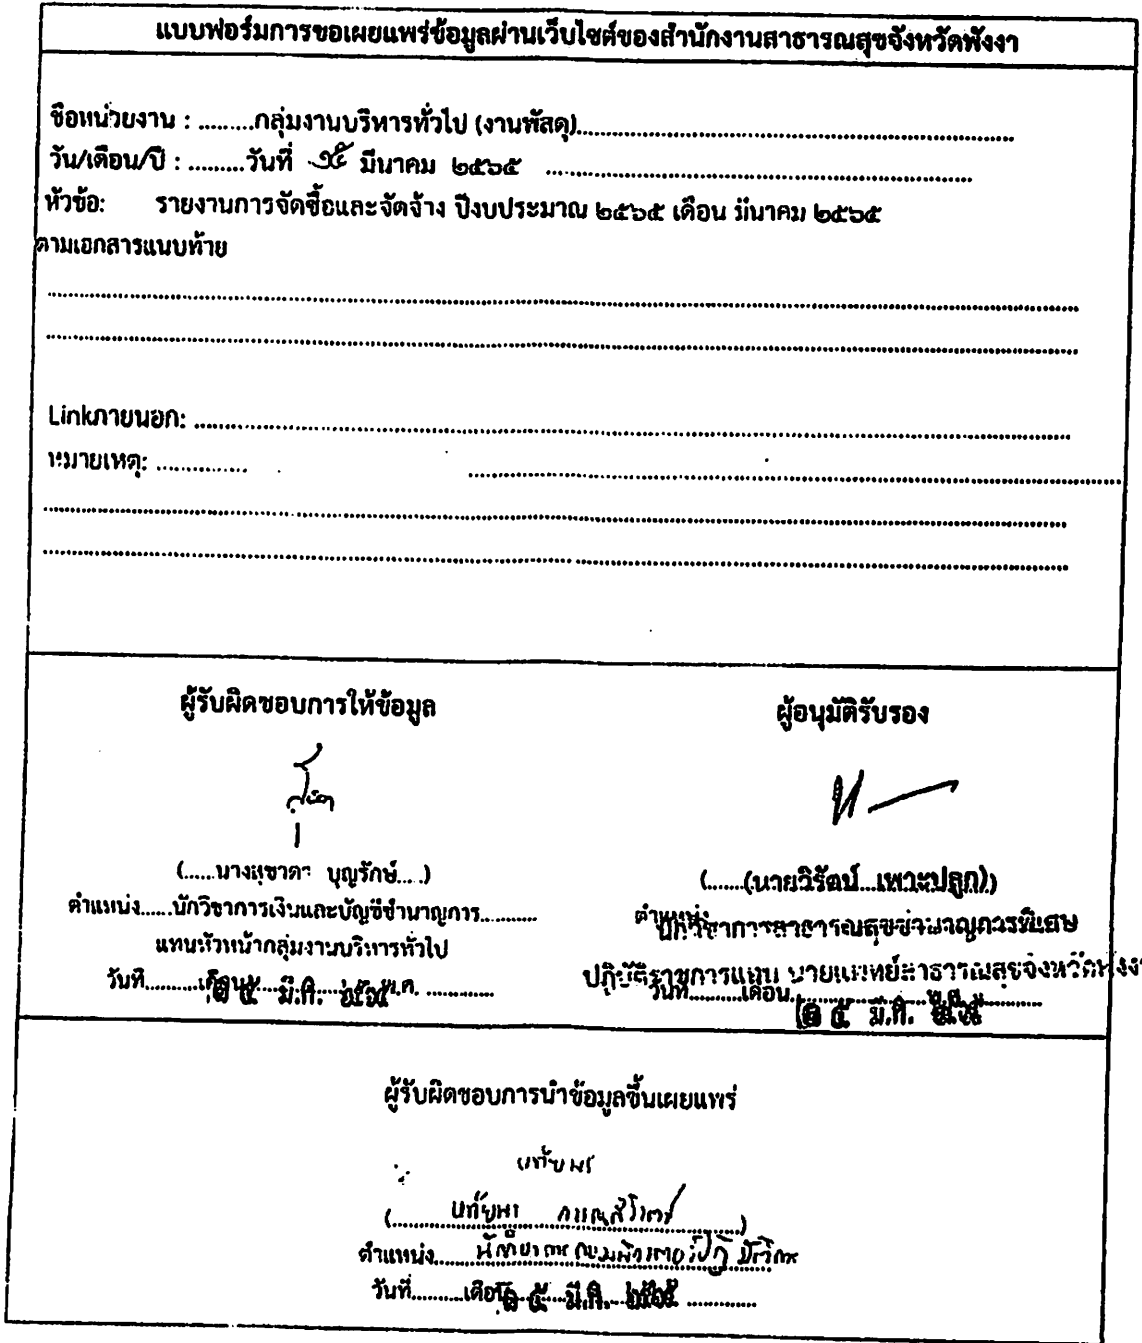 แบบฟอร์มการขอเผยแพร่ข้อมูลผ่านเว็บไซต์ของสำนักงานสาธารณสุขจังหวัดพังงา
ชื่อหน่วยงาน : .........กลุ่มงานบริหารทั่วไป (งานพัสดุ)
วัน/เดือน/ปี : .........วันที่ ๒๕ มีนาคม ๒๕๖๕
หัวข้อ: รายงานการจัดซื้อและจัดจ้าง ปีงบประมาณ ๒๕๖๕ เดือน มีนาคม ๒๕๖๕
ตามเอกสารแนบท้าย
Linkภายนอก:
หมายเหตุ:
ผู้รับผิดชอบการให้ข้อมูล
(......นางสุชาดา บุญรักษ์....)
ตำแหน่ง......นักวิชาการเงินและบัญชีชำนาญการ...........
แทนหัวหน้ากลุ่มงานบริหารทั่วไป
วันที่..........เดือน พ.ศ.
๒๕ มี.ค. ๒๕๖๕
ผู้อนุมัติรับรอง
(.......(นายวิรัตน์ เพาะปลูก))
ตำแหน่ง
นักวิชาการสาธารณสุขชำนาญการพิเศษ
ปฏิบัติราชการแทน นายแพทย์สาธารณสุขจังหวัดพังงา
วันที่..........เดือน พ.ศ.
๒๕ มี.ค. ๒๕๖๕
ผู้รับผิดชอบการนำข้อมูลขึ้นเผยแพร่
ตำแหน่ง นักวิชาการคอมพิวเตอร์ปฏิบัติการ
วันที่..........เดือน
๒๕ มี.ค. ๒๕๖๕